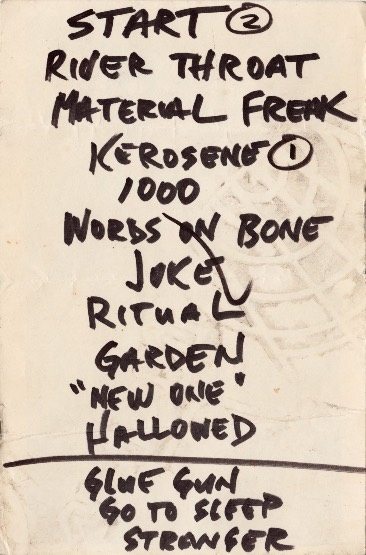 START ②
RIVER THROAT
MATERIAL FREAK
KEROSENE ①
1000
WORDS ON BONE
JOKE
RITUAL
GARDEN
"NEW ONE"
HALLOWED
GLUE GUN
GO TO SLEEP
STRANGER